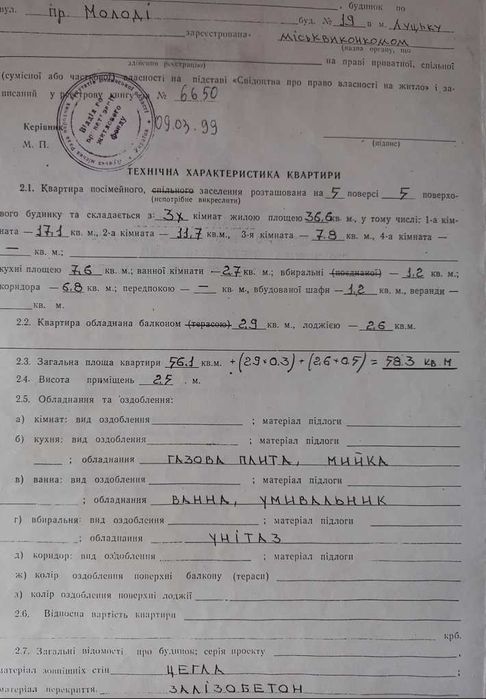 , будинок по
вул. пр. Молоді буд. № 19 в м. Луцьку
зареєстрована міськвиконкомом
(назва органу, що
здійснив реєстрацію) на праві приватної, спільної
(сумісної або часткової) власності на підставі «Свідоцтва про право власності на житло» і за-
писаний у реєстрову книгу № 6650
Керівник 09.03.99
(підпис)
М. П.
Відділ по приватизації житлового фонду
ТЕХНІЧНА ХАРАКТЕРИСТИКА КВАРТИРИ
2.1. Квартира посімейного, спільного заселення розташована на 5 поверсі 5 поверхо-
(непотрібне викреслити)
вого будинку та складається з: 3х кімнат жилою площею 36,6 кв. м., у тому числі: 1-а кім-
ната — 17,1 кв. м., 2-а кімната — 11,7 кв.м., 3-я кімната — 7.8 кв. м., 4-а кімната —
— кв. м.;
кухні площею 7,6 кв. м.; ванної кімнати — 2,7 кв. м.; вбиральні (поєднаної) — 1,2 кв. м.;
коридора — 6.8 кв. м.; передпокою — — кв. м., вбудованої шафи — 1,2 кв. м., веранди —
кв. м.
2.2. Квартира обладнана балконом (терасою) 2,9 кв. м., лоджією — 2,6 кв.м.
2.3. Загальна площа квартири 56.1 кв.м. + (2.9 × 0.3) + (2,6 × 0.5) = 58.3 кв м
2.4. Висота приміщень 2,5 . м.
2.5. Обладнання та оздоблення:
а) кімнат: вид оздоблення ; матеріал підлоги
б) кухня: вид оздоблення ; матеріал підлоги
; обладнання ГАЗОВА ПЛИТА, МИЙКА
в) ванна: вид оздоблення ; матеріал підлоги
; обладнання ВАННА, УМИВАЛЬНИК
г) вбиральня: вид оздоблення ; матеріал підлоги
; обладнання УНІТАЗ
д) коридор: вид оздоблення ; матеріал підлоги
ж) колір оздоблення поверхні балкону (тераси)
з) колір оздоблення поверхні лоджії
2.6. Відносна вартість квартири
крб.
2.7. Загальні відомості про будинок; серія проекту
матеріал зовнішніх стін ЦЕГЛА ;
матеріал перекриття. ЗАЛІЗОБЕТОН